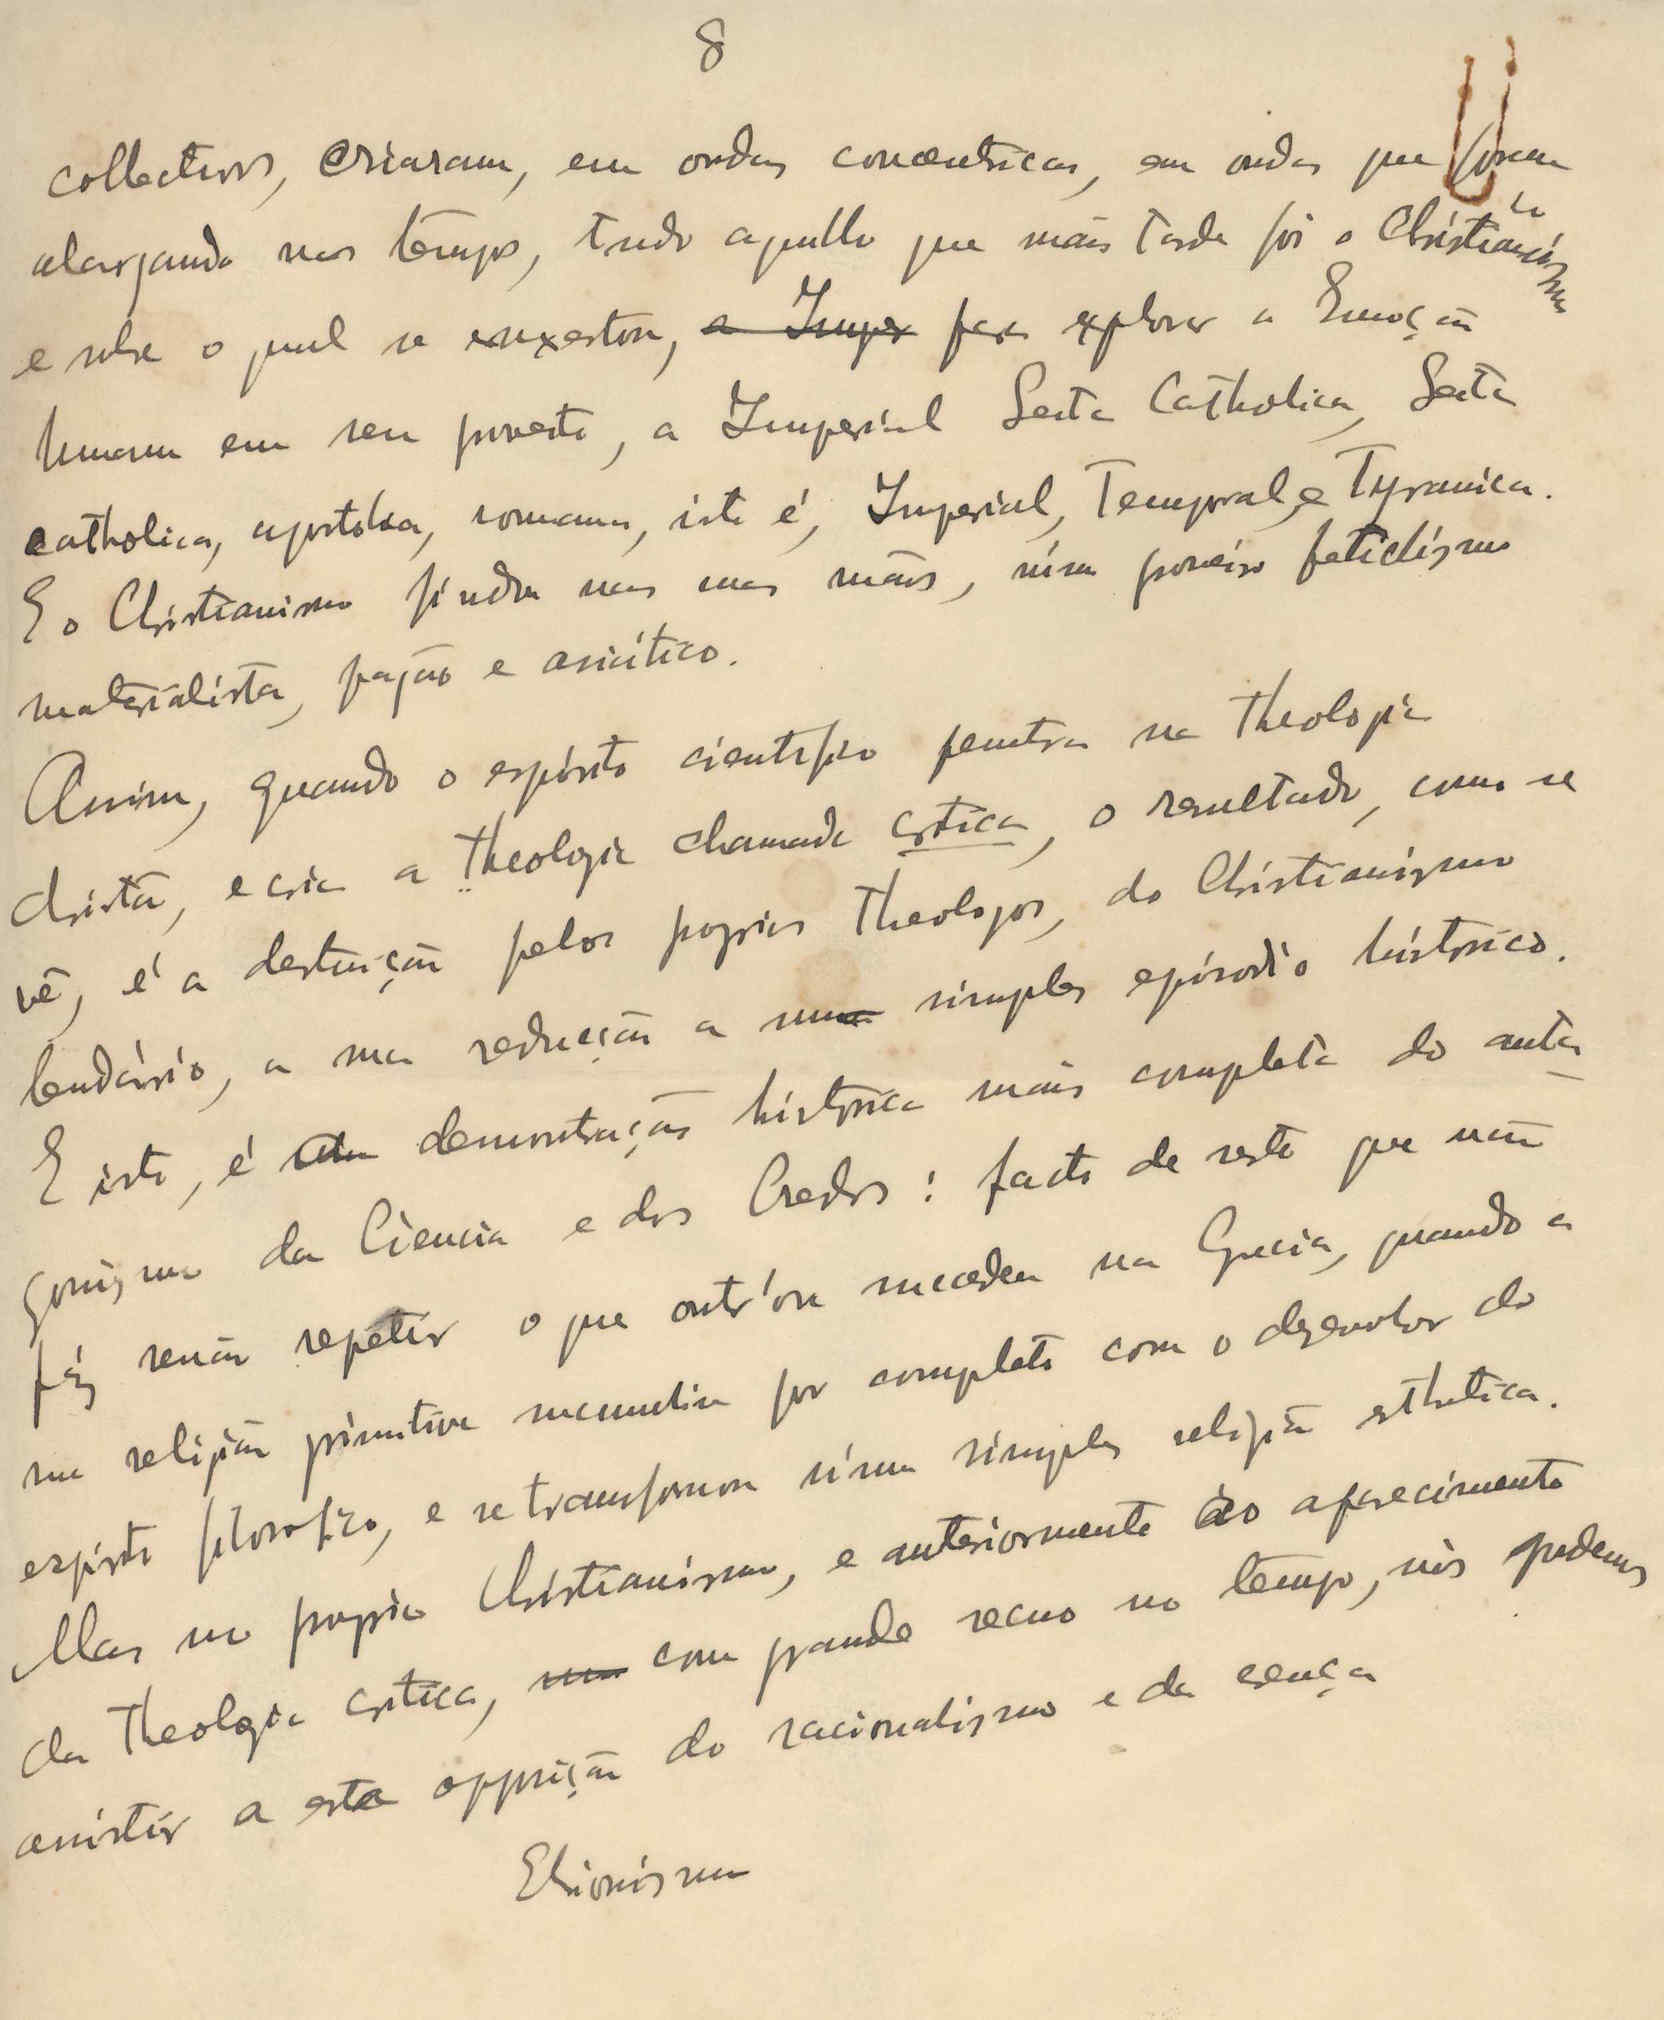 8
collectivos, criaram, em ondas concentricas, em ondas que foram
alargando nos tempos, tudo aquillo que mais tarde foi o Christianismo
e sobre o qual se enxertou, a Imper para explorar a Emoção
humana em seu proveito, a Imperial Seita Catholica, Seita
catholica, apostolica, romana, isto é, Imperial, Temporal, e Tyranica.
E o Christianismo findou nas suas mãos, n'um grosseiro fetichismo
materialista, pagão e asiático.
Assim, quando o espirito cientifico penetra na theologia
christã, e cria a theologia chamada critica, o resultado, como se
vê, é a destruição pelos proprios theologos, do Christianismo
lendário, a sua reducção a um simples episodio histórico.
E isto, é demonstração histórica mais completa do anta-
gonismo da Ciencia e dos Credos: facto de resto que não
fáz senão repetir o que outr'ora succedeu na Grecia, quando a
sua religião primitiva sucumbiu por completo com o desenvolver do
espirito filosofico, e se transformou n'uma simples religião esthetica.
Mas no proprio Christianismo, e anteriormente ao aparecimento
da theologia critica, com grande recuo no tempo, nós podemos
assistir a esta opposição do racionalismo e da crença
Ebionismo